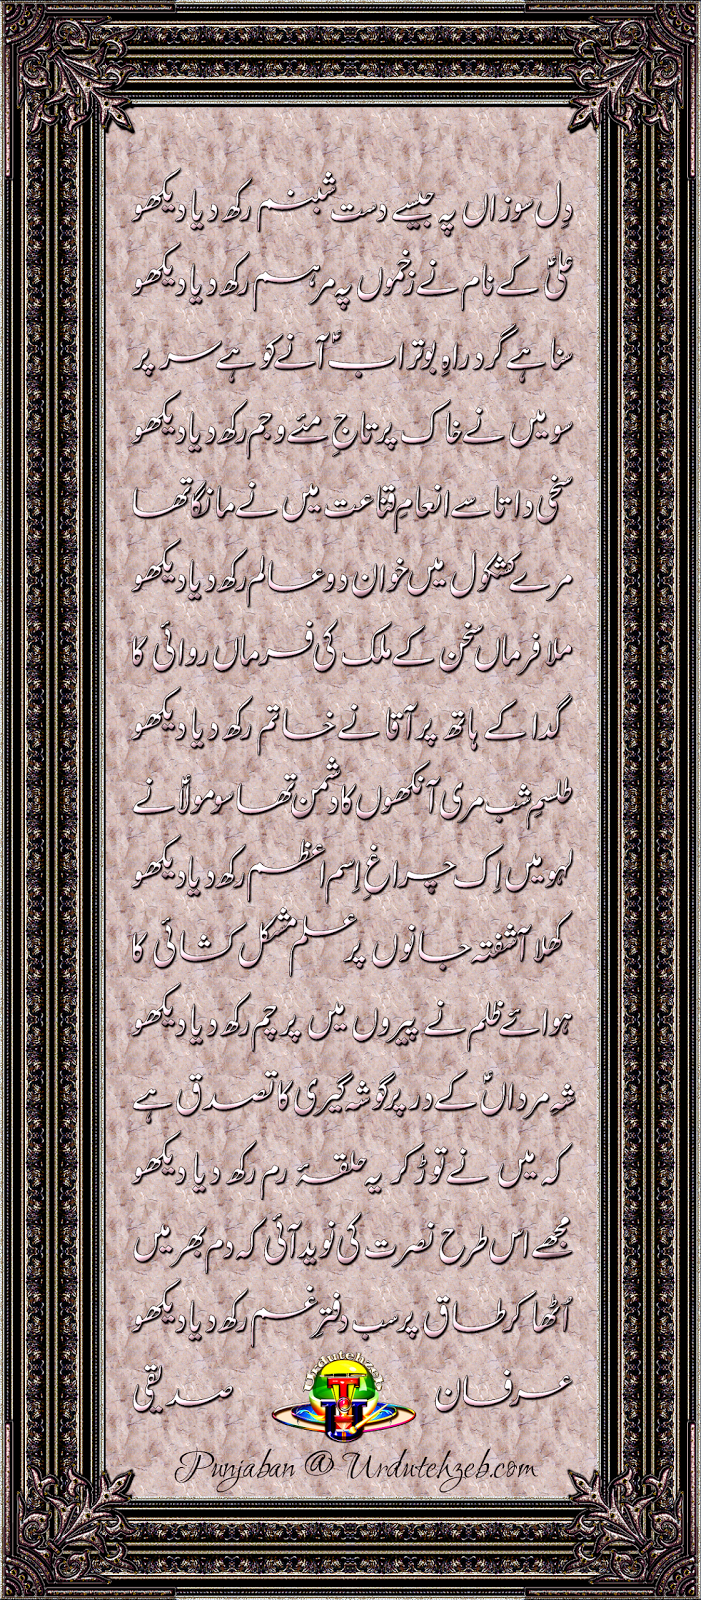 دِل سوزاں پہ جیسے دست شبنم رکھ دیا دیکھو
علیؑ کے نام نے زخموں پہ مرہم رکھ دیا دیکھو
سنا ہے گرد راہِ بوترابؑ آنے کو ہے سر پر
سو میں نے خاک پر تاجِ مئے و جم رکھ دیا دیکھو
سخی داتا سے انعامِ قناعت میں نے مانگا تھا
مرے کشکول میں خوان دو عالم رکھ دیا دیکھو
ملا فرماں سخن کے ملک کی فرماں روائی کا
گدا کے ہاتھ پر آقا نے خاتم رکھ دیا دیکھو
طلسمِ شب مری آنکھوں کا دشمن تھا سو مولاؑ نے
لہو میں اِک چراغِ اِسم اعظم رکھ دیا دیکھو
کھلا آشفتہ جانوں پر علم مشکل کشائی کا
ہوائے ظلم نے پیروں میں پرچم رکھ دیا دیکھو
شہِ مرداںؑ کے در پر گوشہ گیری کا تصدق ہے
کہ میں نے توڑ کر یہ حلقۂ رم رکھ دیا دیکھو
مجھے اس طرح نصرت کی نوید آئی کہ دم بھر میں
اُٹھا کر طاق پر سب دفترِ غم رکھ دیا دیکھو
عرفان صدیقی
Urdutehzeb
Punjaban @ Urdutehzeb.com